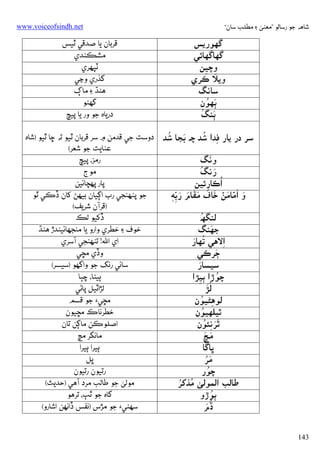 www.voiceofsindh.net
شاهہ جو رسالو "معنيٰ ۽ مطلب سان"
گهوريس
قربان يا صدقي ٿيس
گهاگهائي
مشڪندي
وڇين
ٿيهري
ويلا ڪري
گذري وڃي
سانگ
هنڌ ۽ ماڳ
ٻَهُون
گهڻو
سر در يار فِدا شُد چہ بَجا شُد
دوست جي قدمن ۾ سر قربان ٿيو تہ ڇا ٿيو (شاهہ عنايت جو شعر)
وَنگ
رمز، پيچ
رَنگ
موج
آڪارئين
پار پهچائين
وَ اَمّامَنْ خَافَ مَقَامَ رَبِّہٖ
جو پنهنجي رب اڳيان بيهڻ کان ڏڪي ٿو (قرآن شريف)
جهنگ
خوف ۽ خطري وارو يا منجهائيندڙ هنڌ
اِلاهي تُهارَ
اي الله! تنهنجي آسري
جرڪي
وڏي مڇي
سيسارَ
ساني رنگ جو واڳهو (سيسر)
لُڙَ
لڙاٽيل پاڻي
مڇيءَ جو قسم
خطرناڪ مڇيون
اصلوڪن ماڳن تان
مَڇَ
مانگر مڇ
پاڳا
پيرا پيرا
مَرُ
ڀل
چُورَ
رتيون رتيون
طالب المولىٰ مُذڪرَ
موليٰ جو طالب مرد آهي (حديث)
ٻُوڙو
گاهہ جو ٿڀ، ترهو
دَمَرَ
سهڻيءَ جو مڙس (نفس ڏانهن اشارو)
143